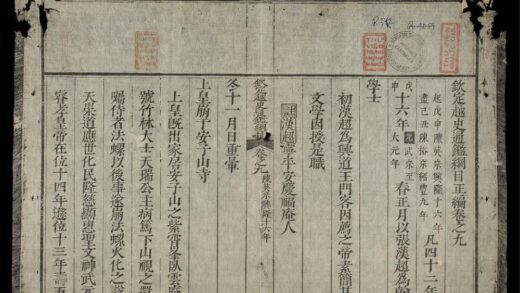 欽定越史通鑑綱目正編卷之九
起戊申陳英宗興隆十六年
盡己丑陳裕宗紹豐九年
凡四十二年
戊申
十六年
元武宗至大元年
春正月以張漢超為
學士
初漢超為興道王門客因薦之帝素簡其
文學因授是職
註漢超寧平安慶福庵人
欽定越史通鑑綱目
卷之九
陳英宗興隆十六年
冬十一月日重暈
上皇崩于安子山寺
上皇既出家居安子山之紫霄峯臥雲庵
號竹林大士天瑞公主病篤下山視之暨
囑侍者法螺以後事遂崩法螺火化之
天梁道應世化民隆慈顯惠聖文神武元
睿孝皇帝在位十四年遜位十三年壽五